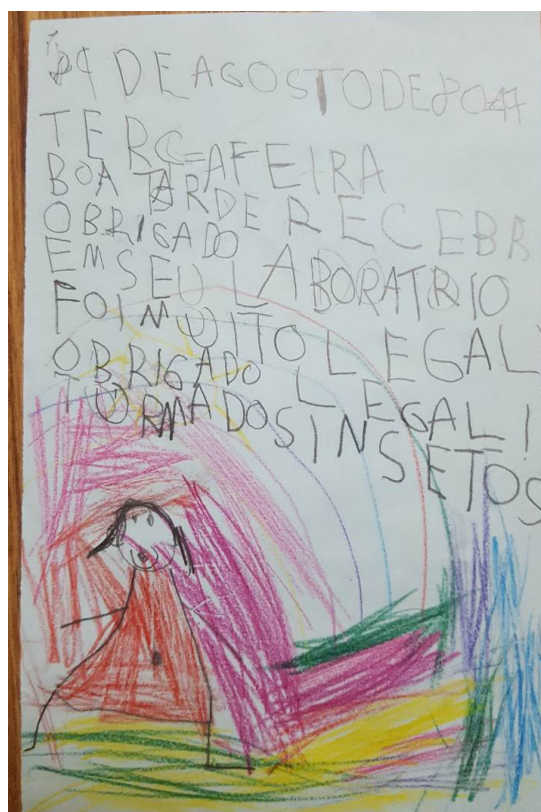 DE AGOSTO DE
TERC=AFEIRA
BOA TARDE RECEBR
OBRIGADO
EM SEU LABORATRIO
FOI MUITO LEGAL
OBRIGADO LEGAL!
TURMA DOS INSETOS